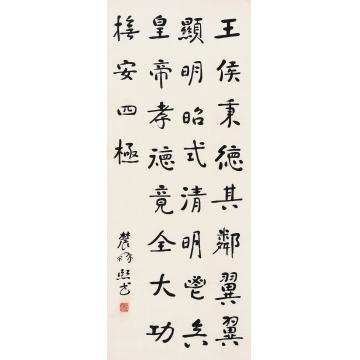 王侯秉德其鄰翼翼
顯明昭式清明鬯矣
皇帝孝德竟全大功
撫安四極
農髯熙書